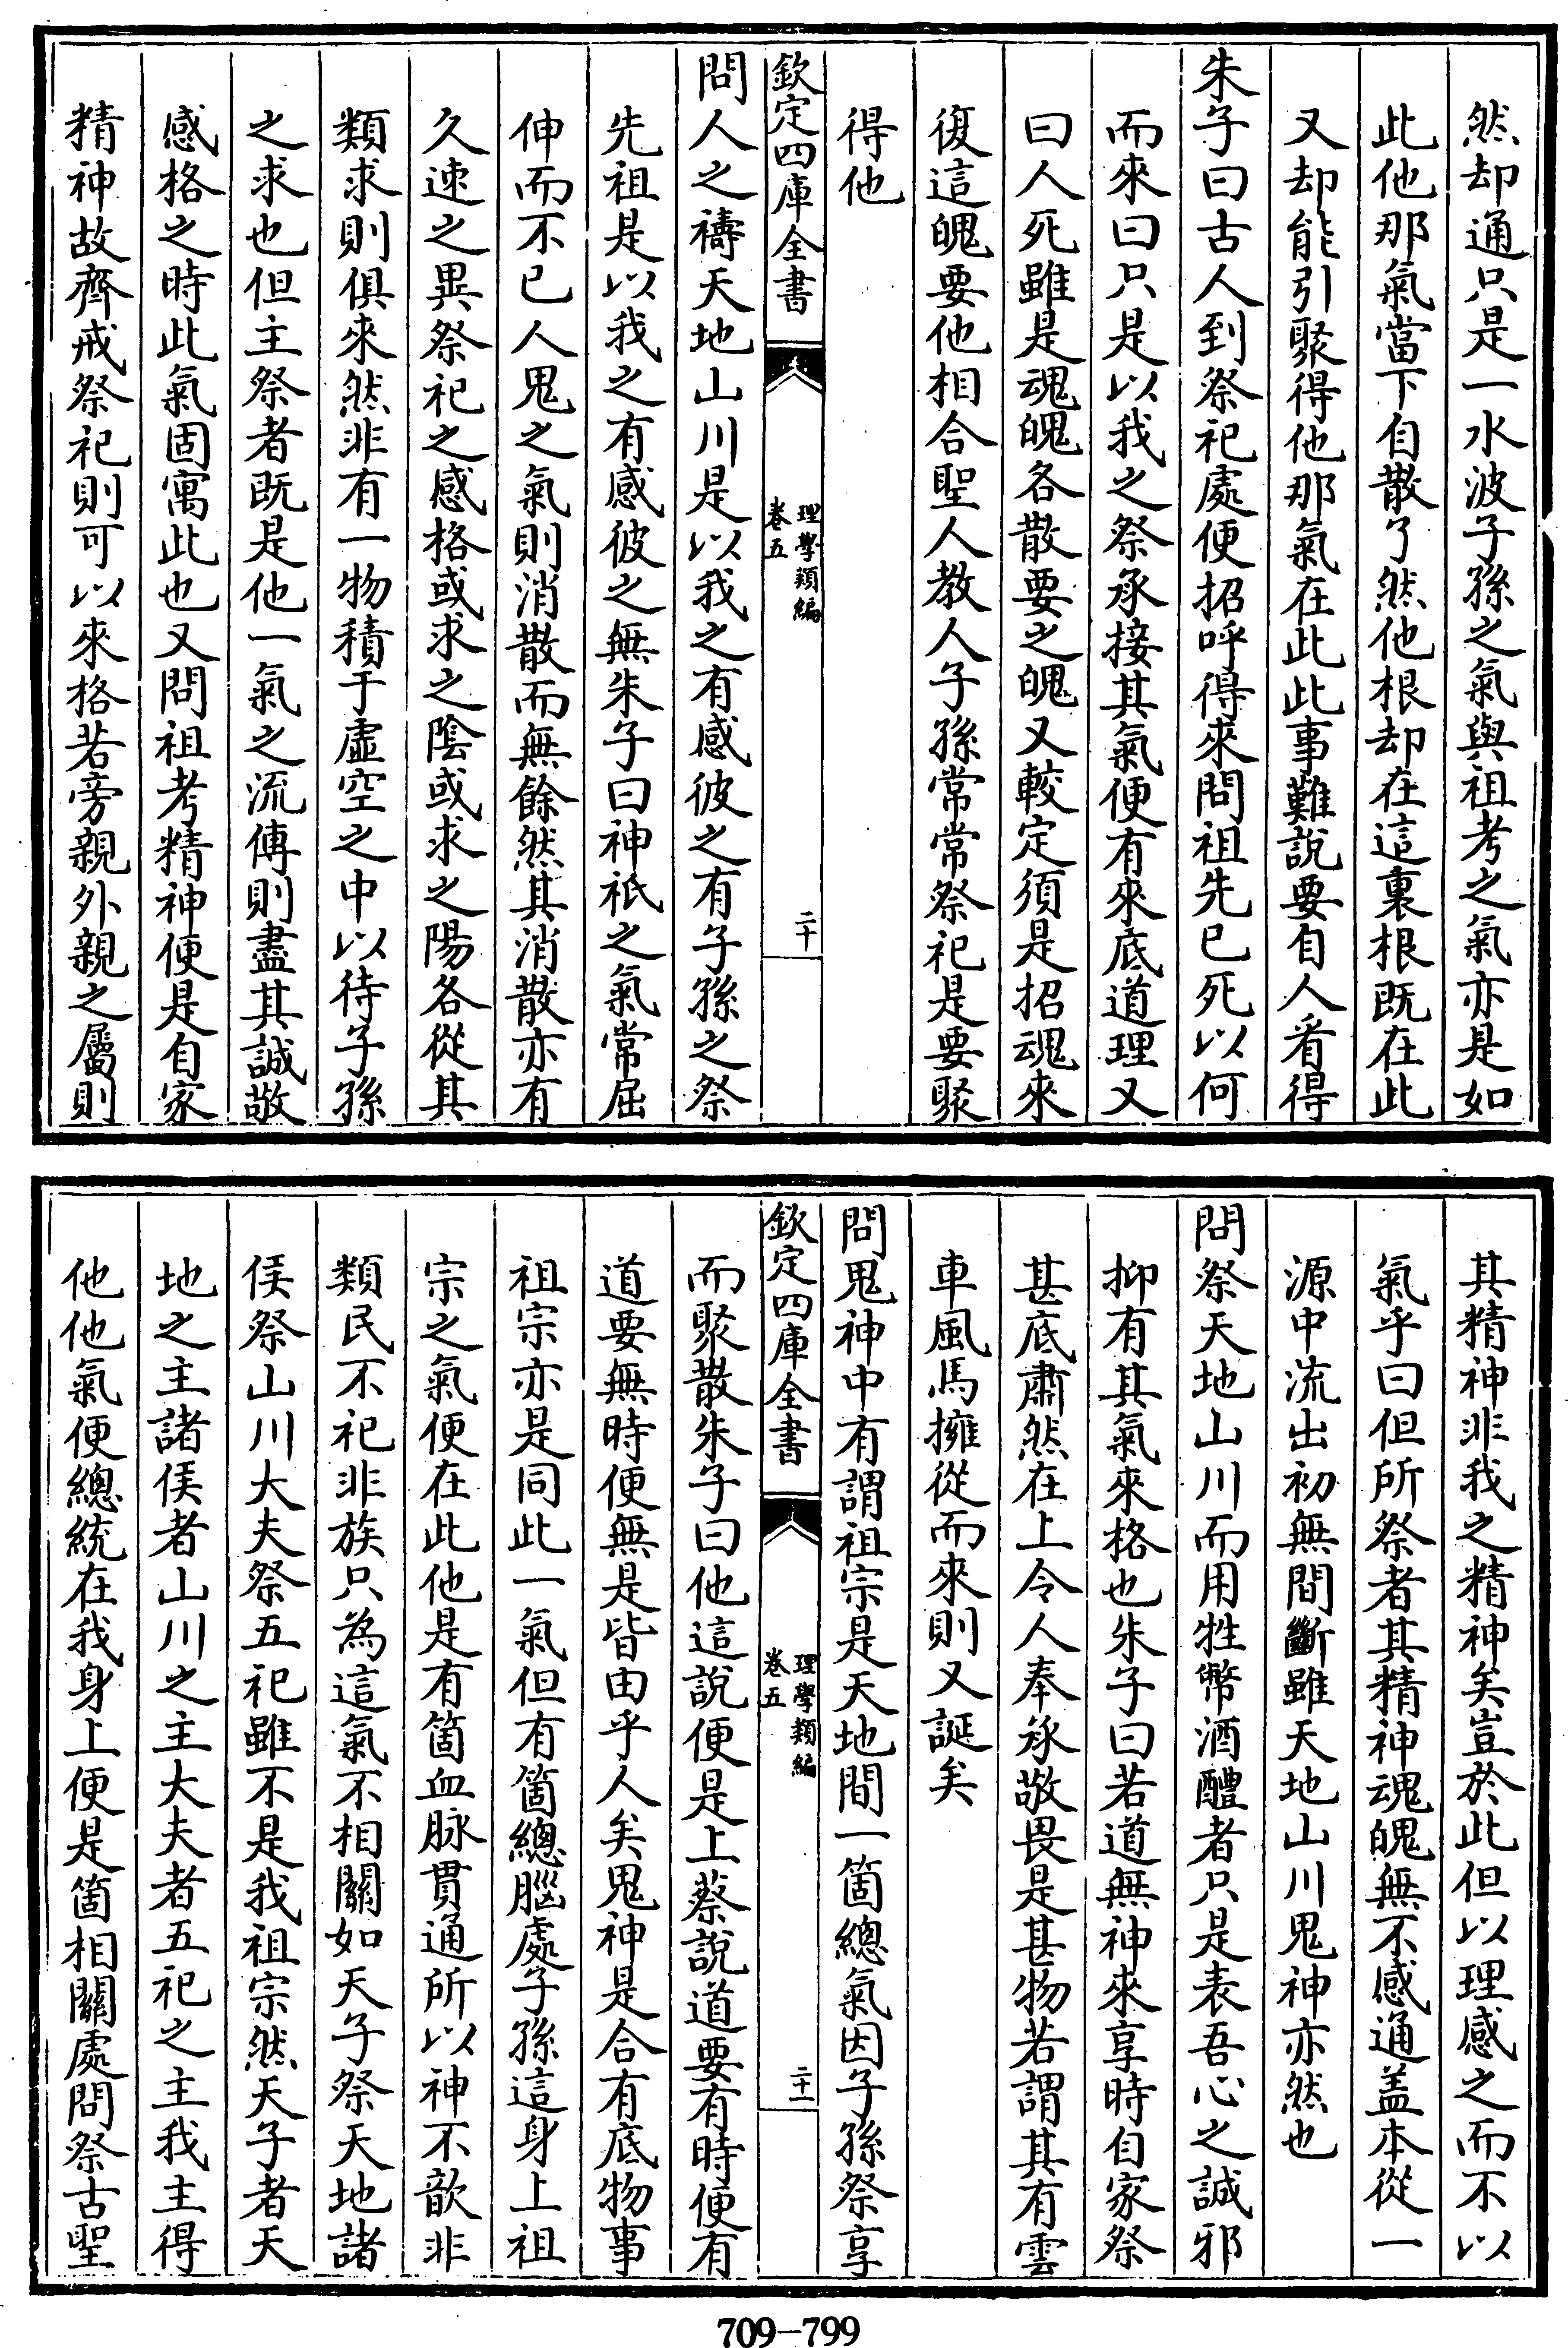 然却通只是一水波子孫之氣與祖考之氣亦是如
此他那氣當下自散了然他根却在這裏根既在此
又却能引聚得他那氣在此此事難說要自人看得
朱子曰古人到祭祀處便招呼得來問祖先已死以何
而來曰只是以我之祭承接其氣便有來底道理又
曰人死雖是魂魄各散要之魄又較定須是招魂來
復這魄要他相合聖人教人子孫常常祭祀是要聚
得他
欽定四庫全書
理學類編
卷五
二十
問人之禱天地山川是以我之有感彼之有子孫之祭
先祖是以我之有感彼之無朱子曰神祇之氣常屈
伸而不已人鬼之氣則消散而無餘然其消散亦有
久速之異祭祀之感格或求之陰或求之陽各從其
類求則俱來然非有一物積于虛空之中以待子孫
之求也但主祭者既是他一氣之流傳則盡其誠敬
感格之時此氣固寓此也又問祖考精神便是自家
精神故齊戒祭祀則可以來格若旁親外親之屬則
其精神非我之精神矣豈於此但以理感之而不以
氣乎曰但所祭者其精神魂魄無不感通盖本從一
源中流出初無間斷雖天地山川鬼神亦然也
問祭天地山川而用牲幣酒醴者只是表吾心之誠邪
抑有其氣來格也朱子曰若道無神來享時自家祭
甚底肅然在上令人奉承敬畏是甚物若謂其有雲
車風馬擁從而來則又誕矣
問鬼神中有謂祖宗是天地間一箇總氣因子孫祭享
欽定四庫全書
理學類編
卷五
二十一
而聚散朱子曰他這說便是上蔡說道要有時便有
道要無時便無是皆由乎人矣鬼神是合有底物事
祖宗亦是同此一氣但有箇總腦處子孫這身上祖
宗之氣便在此他是有箇血脉貫通所以神不歆非
類民不祀非族只為這氣不相關如天子祭天地諸
侯祭山川大夫祭五祀雖不是我祖宗然天子者天
地之主諸侯者山川之主大夫者五祀之主我主得
他他氣便總統在我身上便是箇相關處問祭古聖
709-799